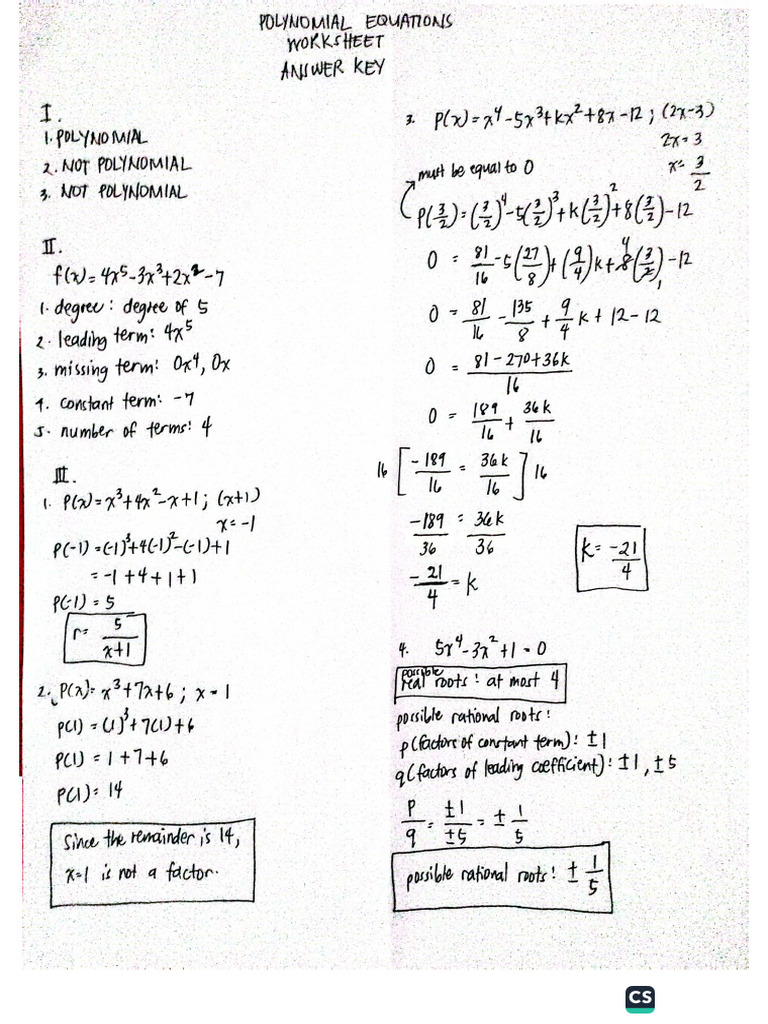 POLYNOMIAL EQUATIONS
WORKSHEET
ANSWER KEY
I.
1. POLYNOMIAL
2. NOT POLYNOMIAL
3. NOT POLYNOMIAL
II.
f(x) = 4x⁵-3x³+2x²-7
1. degree: degree of 5
2. leading term: 4x⁵
3. missing term: 0x⁴, 0x
4. constant term: -7
5. number of terms: 4
III.
1. P(x) = x³+4x²-x+1 ; (x+1)
x = -1
P(-1) = (-1)³+4(-1)²-(-1)+1
= -1+4+1+1
P(-1) = 5
r = 5/(x+1)
2. P(x) = x³+7x+6 ; x = 1
P(1) = (1)³+7(1)+6
P(1) = 1+7+6
P(1) = 14
Since the remainder is 14,
x=1 is not a factor.
3. P(x) = x⁴-5x³+kx²+8x-12 ; (2x-3)
2x = 3
must be equal to 0
x = 3/2
P(3/2) = (3/2)⁴-5(3/2)³+k(3/2)²+8(3/2)-12
0 = 81/16-5(27/8)+(9/4)k+8(3/2)-12
4
1
0 = 81/16 - 135/8 + 9/4 k + 12 - 12
0 = (81-270+36k)/16
0 = 189/16 + 36k/16
16[-189/16 = 36k/16]16
-189/36 = 36k/36
-21/4 = k
k = -21/4
4. 5x⁴-3x²+1 = 0
possible
real roots: at most 4
possible rational roots:
p(factors of constant term): ±1
q(factors of leading coefficient): ±1, ±5
p/q = ±1/±5 = ± 1/5
possible rational roots: ± 1/5
CS